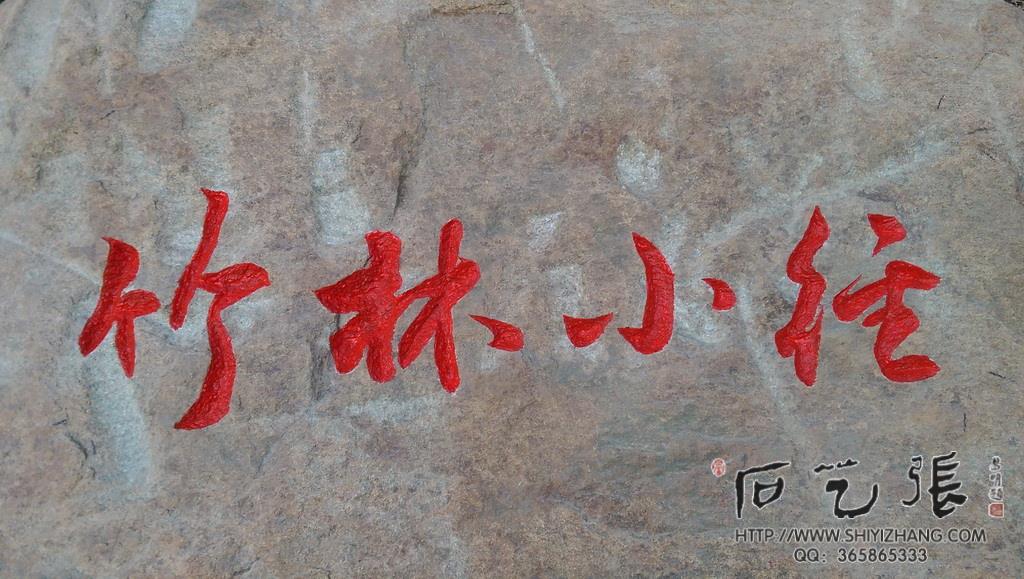 竹林小径
石艺張
HTTP://WWW.SHIYIZHANG.COM
QQ: 365865333